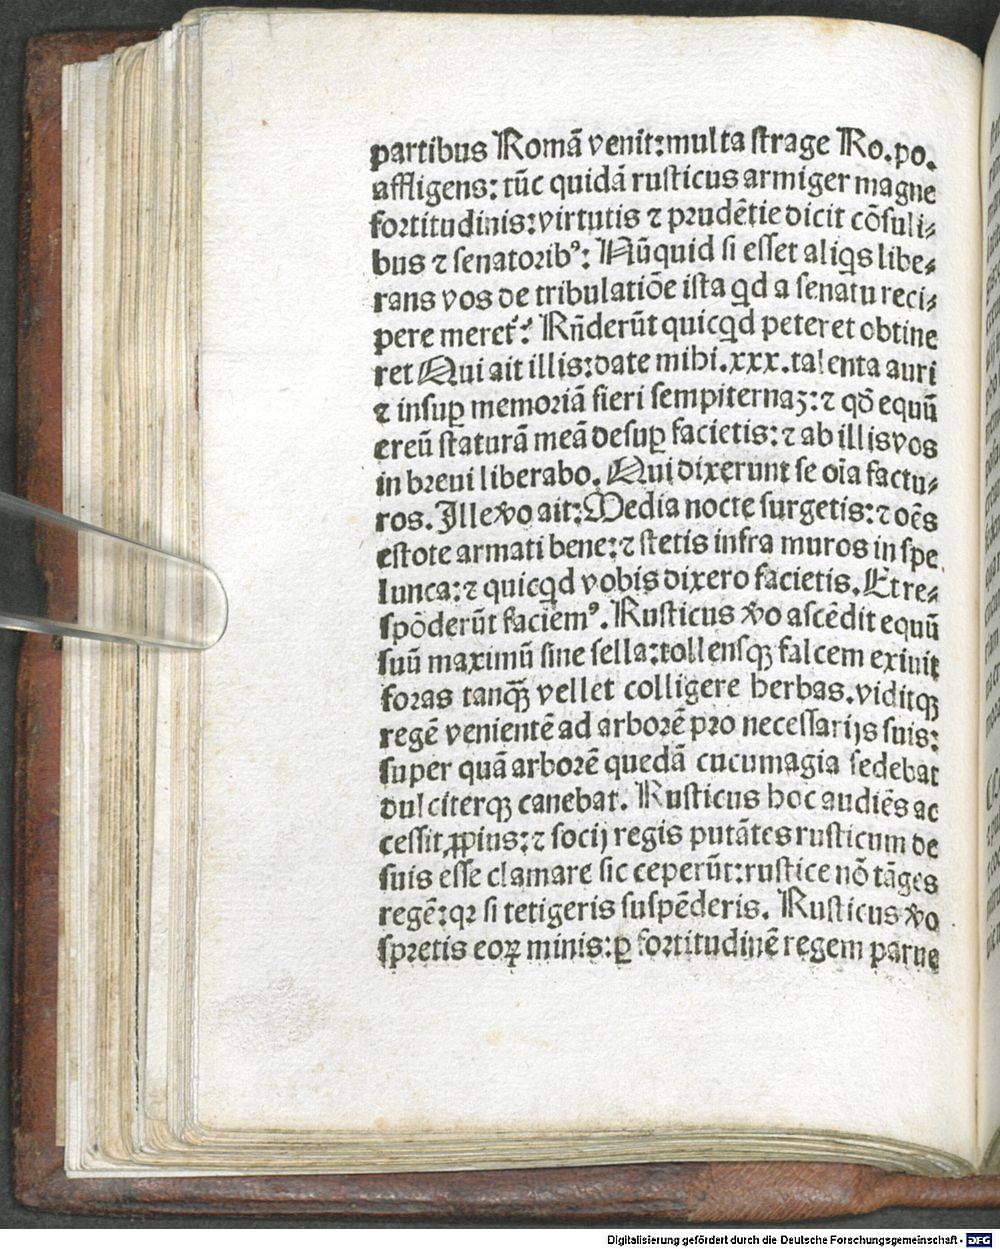 partibus Romã venit:multa ſtrage Ro.po.
affligens: tũc quidã ruſticus armiger magne
fortitudinis:virtutis ⁊ prudẽtie dicit cõſuli⸗
bus ⁊ ſenatoribꝰ: Nũquid ſi eſſet aliq̃s libe⸗
rans vos de tribulatiõe iſta qd a ſenatu reci⸗
pere meret᷑: Rñderũt quicqd peteret obtine
ret Qui ait illis:date mihi.xxx.talenta auri
⁊ inſuꝑ memoriã fieri ſempiternaꝫ:⁊ qđ equũ
ereũ ſtaturã meã deſuꝑ facietis:⁊ ab illis vos
in breui liberabo. Qui dixerunt ſe oĩa factu⸗
ros. Ille v̆o ait:Media nocte ſurgetis:⁊ oẽs
eſtote armati bene:⁊ ſtetis infra muros in ſpe
lunca:⁊ quicqd vobis dixero facietis. Et re⸗
ſpõderũt faciemꝰ. Ruſticus v̆o aſcẽdit equũ
ſuũ maximũ ſine ſella:tollenſqꝫ falcem exiuit
foras tanqꝫ̃ vellet colligere herbas.viditqꝫ
regẽ venientẽ ad arborẽ pro neceſſarijs ſuis:
ſuper quã arborẽ quedã cucumagia ſedebat
dulciterqꝫ canebat. Ruſticus hoc audiẽs ac
ceſſit ꝓpius:⁊ ſocij regis putãtes ruſticum de
ſuis eſſe clamare ſic ceperũt:ruſtice nõ tãges
regẽ:qꝛ ſi tetigeris ſuſpẽderis. Ruſticus v̆o
ſpretis eoꝝ minis:ꝑ fortitudinẽ regem parue
Digitalisierung gefördert durch die Deutsche Forschungsgemeinschaft - DFG